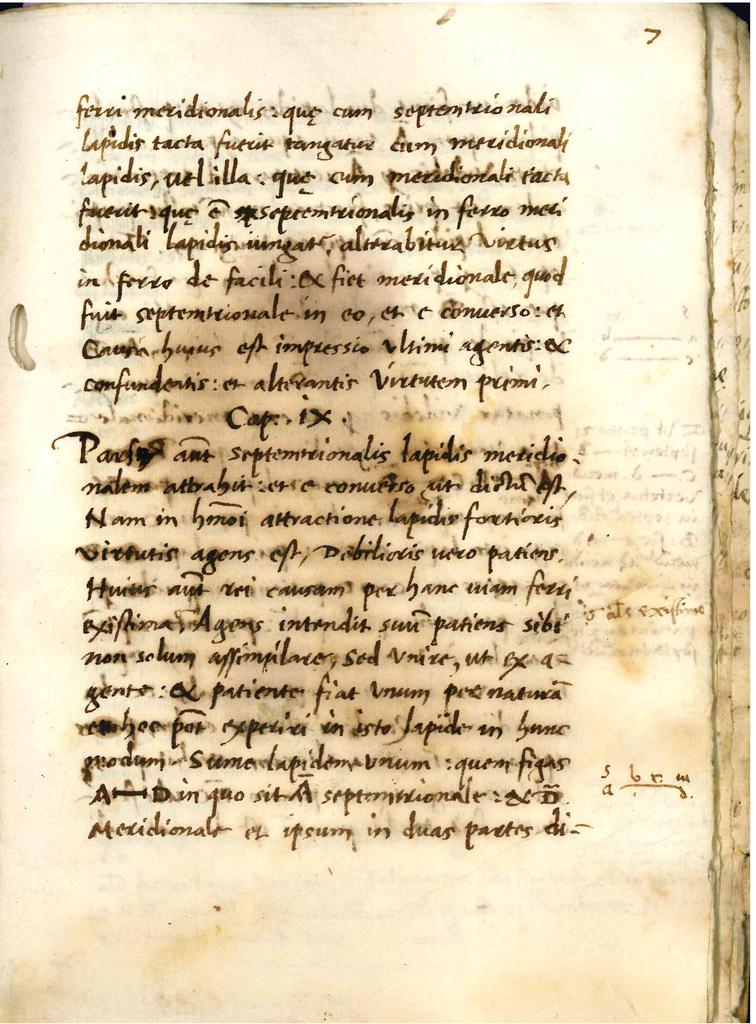 7
ferri meridionalis: quę cum septemtrionali
lapidis tacta fuerit tangatur cum meridionali
lapidis, uel illa: quę cum meridionali tacta
fuerit: quę ē septemtrionalis in ferro meri
dionali lapidis iungat̃, alterabitur virtus
in ferro de facili: & fiet meridionale, quod
fuit septemtrionale in eo, et e conuerso: et
Causa huius est impressio vltimi agentis: &
confundentis: et alterantis virtutem primi.
Cap. IX.
Pars aũt septemtrionalis lapidis meridio-
nalem attrahit: et e conuerso ut dictũ est,
Nam in hm̃oi attractione lapidis fortioris
virtutis agens est, Debilioris uero patiens.
Huius aũt rei causam per hanc uiam ferri
existima, Agens intendit suũ patiens sibi
non solum assimilare, sed vnire, ut ex a-
gente: & patiente fiat vnum per naturã
et hoc põt experiri in isto lapide in hunc
modum. Sume lapidem vnum: quem figas
A—D in quo sit A septemtrionale: & D
Meridionale et ipsum in duas partes di-
existimo
s b c m
a d